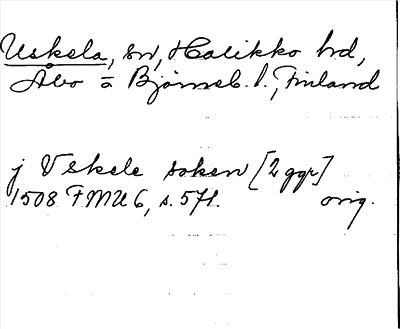 Uskela, sn, Halikko hd,
Åbo o Björneb. l., Finland
j Vskele soken [2 ggr]
1508 FMU 6, s. 571. orig.